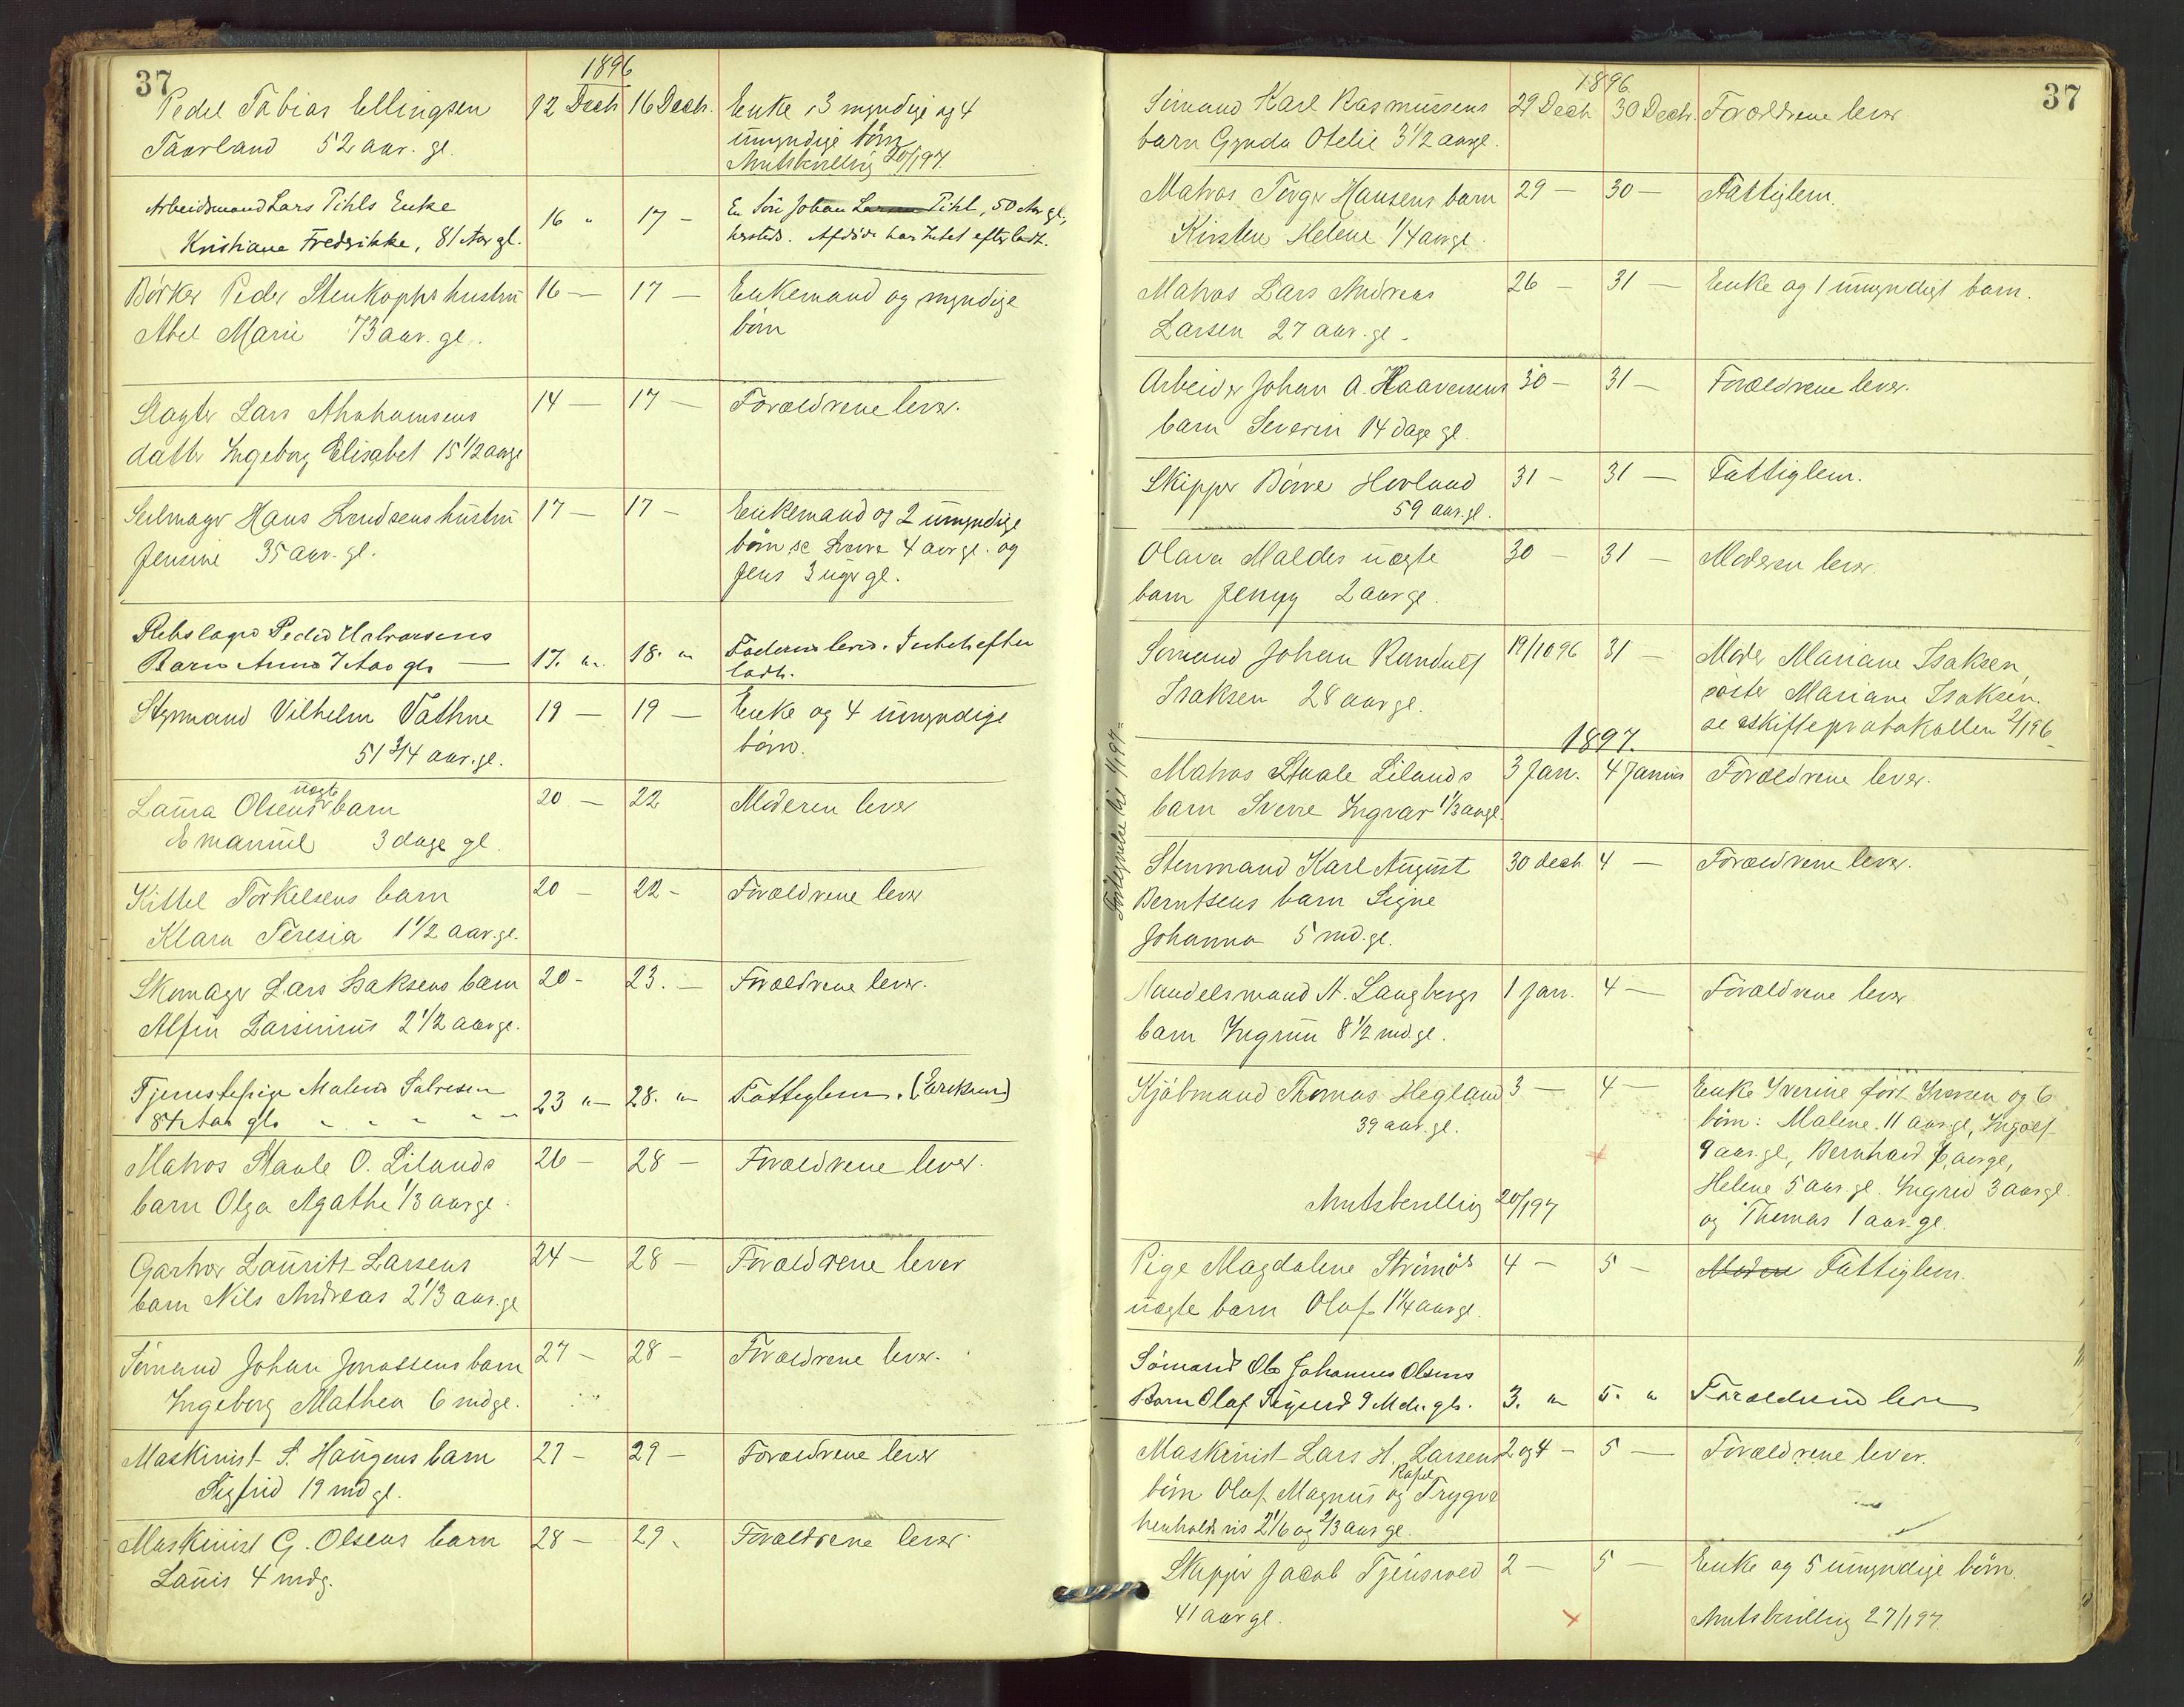 37
1896
Pedel Tobias Ellingsen 12 Decb 16 Decb. Enke, 3 myndige og 4
Taarland 52 aar. gl. umyndige börn
Amtsbevillig 20/1 97.
Arbeidsmand Lars Pihls Enke 16 " 17 - En Sön Johan Larsen Pihl, 50 Aar gl.,
Kristiane Fredrikke, 81 Aar gl. hersteds. Afdöde har Intet efterladt.
Börker Peder Stenkophs hustru 16 — 17 — Enkemand og myndige
Abel Marie 73 aar. gl. börn
Slagter Lars Abrahamsens 14 — 17 — Forældrene lever.
datter Ingeborg Elisabet 15 1/2 aargl
Seilmager Hans Svendsens hustru 17 — 17 — Enkemand og 2 umyndige
Jensine 35 aar. gl. börn se Sverre 4 aar gl. og
Jens 3 uger gl.
Rebslager Peder Halvorsens
Barn Anna 7 Aar gl. — 17. " 18. " Faderen lever. Intet efter
ladt.
Styrmand Vilhelm Tathne 19 — 19 — Enke og 4 umyndige
51 3/4 aar. gl. börn.
uægte
Laura Olsens barn 20 — 22 Moderen lever
Emanuel 3 dage gl.
Kittel Torkelsens barn 20 — 22 - Forældrene lever
Klara Teresia 1 1/2 aar. gl.
Skomager Lars Isaksens barn 20 - 23. — Forældrene lever.
Alfin Larsinius 2 1/2 aar gl.
Tjenestepige Malene Salvesen 23 " 28. " Fattiglem. (Enken)
84 Aar gl.
Matros Staale O. Lilands 26 — 28 — Forældrene lever.
barn Olga Agathe 1/3 aar gl.
Garver Laurits Larsens 24 — 28 — Forældrene lever
barn Nils Andreas 2 1/3 aar. gl
Sömand Johan Jonassens barn 27 — 28 — Forældrene lever.
Ingeborg Mathea 6 md gl.
Maskinist S. Haugens barn 27 — 29 — Forældrene lever
Sigfrid 19 md gl.
Maskinist G. Olsens barn 28 — 29 - Forældrene lever.
Lauis 4 mdg.
37
1896
Sömand Karl Rasmussens 29 Decb 30 Decb. Forældrene lever.
barn Gynda Otelie 3 1/2 aargl.
Matros Torger Hansens barn 29 — 30 — Fattiglem.
Kirsten Helene 1/4 aargl.
Matros Lars Andreas 26 — 31 — Enke og 1 umyndigt barn.
Larsen 27 aar. gl.
Arbeider Johan A. Haaversens 30 — 31 — Forældrene lever.
barn Severin 14 dage gl.
Skipper Börre Hovland 31 — 31 — Fattiglem.
59 aar. gl.
Olava Maldes uægte 30 — 31 — Moderen lever.
barn Jenny 2 aar gl.
Sömand Johan Randulf 19/10 96 31 — Moder Mariane Isaksen,
Isaksen 28 aar gl. söster Mariane Isaksen.
se skifteprotokollen 2/1 96
1897.
Matros Staale Lilands 3 Jan. 4 Januar Forældrene lever.
barn Sverre Ingvar 1/3 aargl.
Stenmand Karl August 30 decb 4 — Forældrene lever.
Berntsens barn Signe
Johanna 5 md. gl.
Handelsmand A. Langbergs 1 Jan. 4 — Forældrene lever
barn Ingrun 8 1/2 md. gl.
Kjöbmand Thomas Hegland 3 — 4 — Enke Iverine född Iversen og 6
39 aar. gl. börn: Malene 11 aar gl, Ingolf
9 aar. gl, Bernhard 7 aar gl,
Helene 5 aar. gl. Ingrid 3 aar gl
Amtsbevillig 20/1 97 og Thomas 1 aar. gl.
Pige Magdalene Strömös 4 — 5 — Moderen Fattiglem.
uægte barn Olaf 1 1/4 aar gl.
Sömand Ole Johannes Olsens
Barn Olaf Sigurd 9 Mdr. gl. 3. " 5. " Forældrene lever
Maskinist Lars H. Larsens 2 og 4 — 5 — Forældrene lever.
börn Olaf Magnus og Rafael Trygve
henholdsvis 2 1/6 og 2/3 aar gl.
Skipper Jacob Tjensvoll 2 — 5 — Enke og 5 umyndige börn.
41 aar gl. Amtsbevillig 27/1 97.